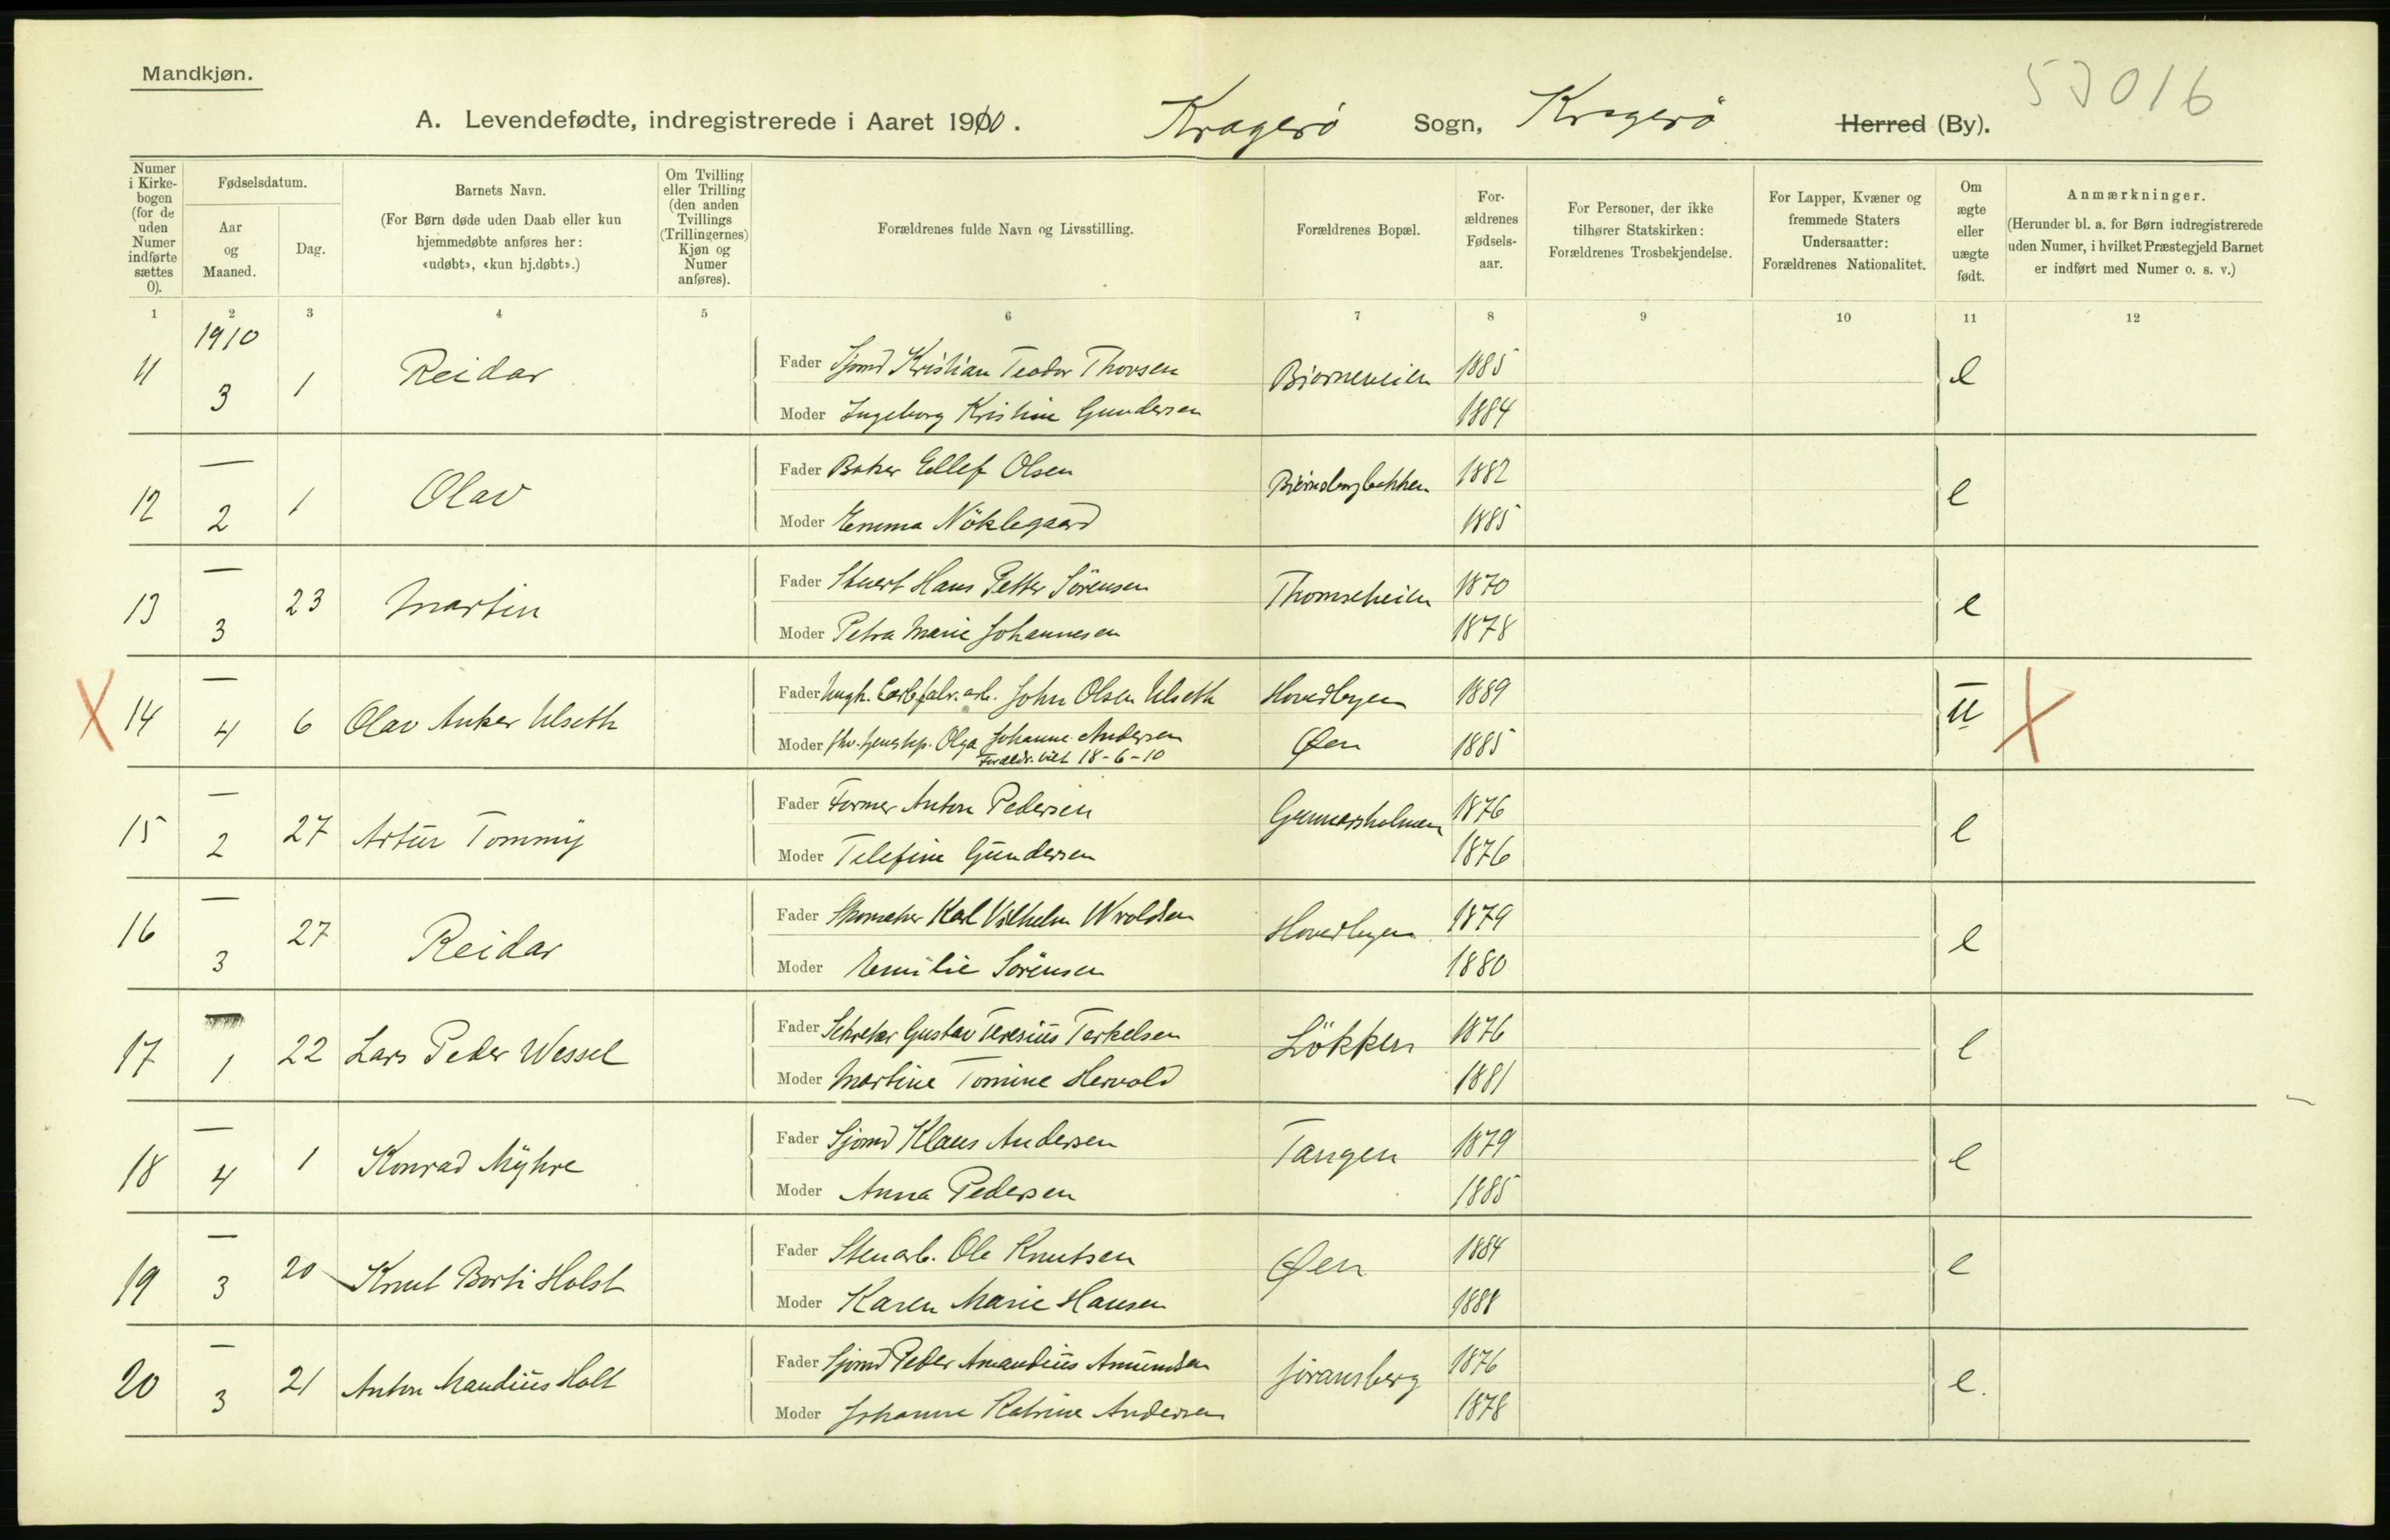 Mandkjøn.
53016
A. Levendefødte, indregistrerede i Aaret 1910. Kragerö Sogn, Kragerö Herred (By).
Numer i Kirkebogen (for de uden Numer indførte sættes 0).
Fødselsdatum.
Aar og Maaned.
Dag.
Barnets Navn.
(For Børn døde uden Daab eller kun hjemmedøbte anføres her: «udøbt», «kun hj.døbt».)
Om Tvilling eller Trilling (den anden Tvillings (Trillingernes) Kjøn og Numer anføres).
Forældrenes fulde Navn og Livsstilling.
Forældrenes Bopæl.
Forældrenes Fødselsaar.
For Personer, der ikke tilhører Statskirken: Forældrenes Trosbekjendelse.
For Lapper, Kvæner og fremmede Staters Undersaatter: Forældrenes Nationalitet.
Om ægte eller uægte født.
Anmærkninger.
(Herunder bl. a. for Børn indregistrerede uden Numer, i hvilket Præstegjeld Barnet er indført med Numer o. s. v.)
1 2 3 4 5 6 7 8 9 10 11 12
1910
11 3 1 Reidar Fader Sjømd Kristian Teodor Thorsen Bjorneveien 1885 e
Moder Ingeborg Kristine Gundersen 1884
—
12 2 1 Olav Fader Baker Ellef Olsen Björnsbergbakken 1882 e
Moder Emma Nöklegaard 1885
—
13 3 23 Martin Fader Stuert Hans Petter Sörensen Thomseheien 1870 e
Moder Petra Marie Johannesen 1878
—
X 14 4 6 Olav Anker Ulseth Fader Ungk. John Olsen Ulseth Hovedbyen 1889 u X
Moder Olga Johanne Andersen Øen 1885
Foræld. viet 18-6-10
—
15 2 27 Artur Tommy Fader Former Anton Pedersen Gunnarsholmen 1876 e
Moder Telefine Gundersen 1876
—
16 3 27 Reidar Fader Skomaker Karl Vilhelm Wroldsen Hovedbyen 1879 e
Moder Emilie Sörensen 1880
—
17 1 22 Lars Peder Wessel Fader Sekretær Gustav Teresius Terkelsen Lökken 1876 e
Moder Martine Tomine Hervold 1881
—
18 4 1 Konrad Myhre Fader Sjømd Klaus Andersen Tangen 1879 e
Moder Anna Pedersen 1885
—
19 3 20 Knut Borti Holst Fader Stenarb. Ole Knutsen Øen 1884 e
Moder Karen Marie Hansen 1888
—
20 3 21 Anton Mandius Holt Fader Sjømd Peder Amandius Amundsen Jöransberg 1876 e.
Moder Johanne Katrine Andersen 1878